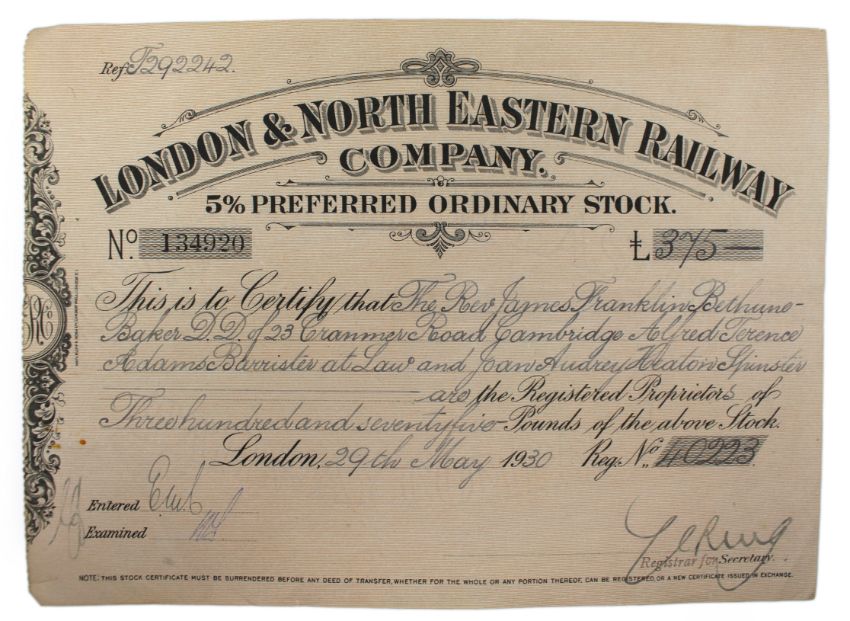 Ref: T292242.
LONDON & NORTH EASTERN RAILWAY
COMPANY.
5% PREFERRED ORDINARY STOCK.
No. 134920 £ 375—
This is to Certify that The Rev James Franklin Bethune-
Baker D.D. of 23 Cranmer Road Cambridge Alfred Terence
Adams Barrister at Law and Joan Audrey Heaton Spinster
are the Registered Proprietors of
Three hundred and seventy five Pounds of the above Stock.
London, 29th May 1930 Reg. No. 40223.
Entered
Examined
Registrar for Secretary.
NOTE: THIS STOCK CERTIFICATE MUST BE SURRENDERED BEFORE ANY DEED OF TRANSFER, WHETHER FOR THE WHOLE OR ANY PORTION THEREOF, CAN BE REGISTERED, OR A NEW CERTIFICATE ISSUED IN EXCHANGE.